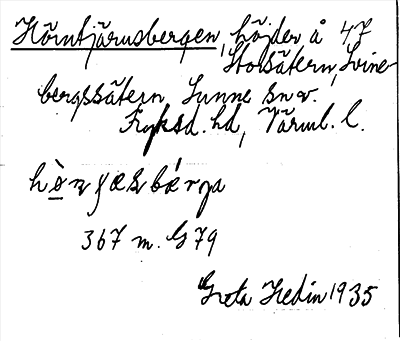 Hörntjärnsbergen, höjder å 47
Stolsätern, Svine
bergssätern, Sunne sn v.
Fryksd. hd, Värml. l.
367 m. G 79
Greta Hedin 1935